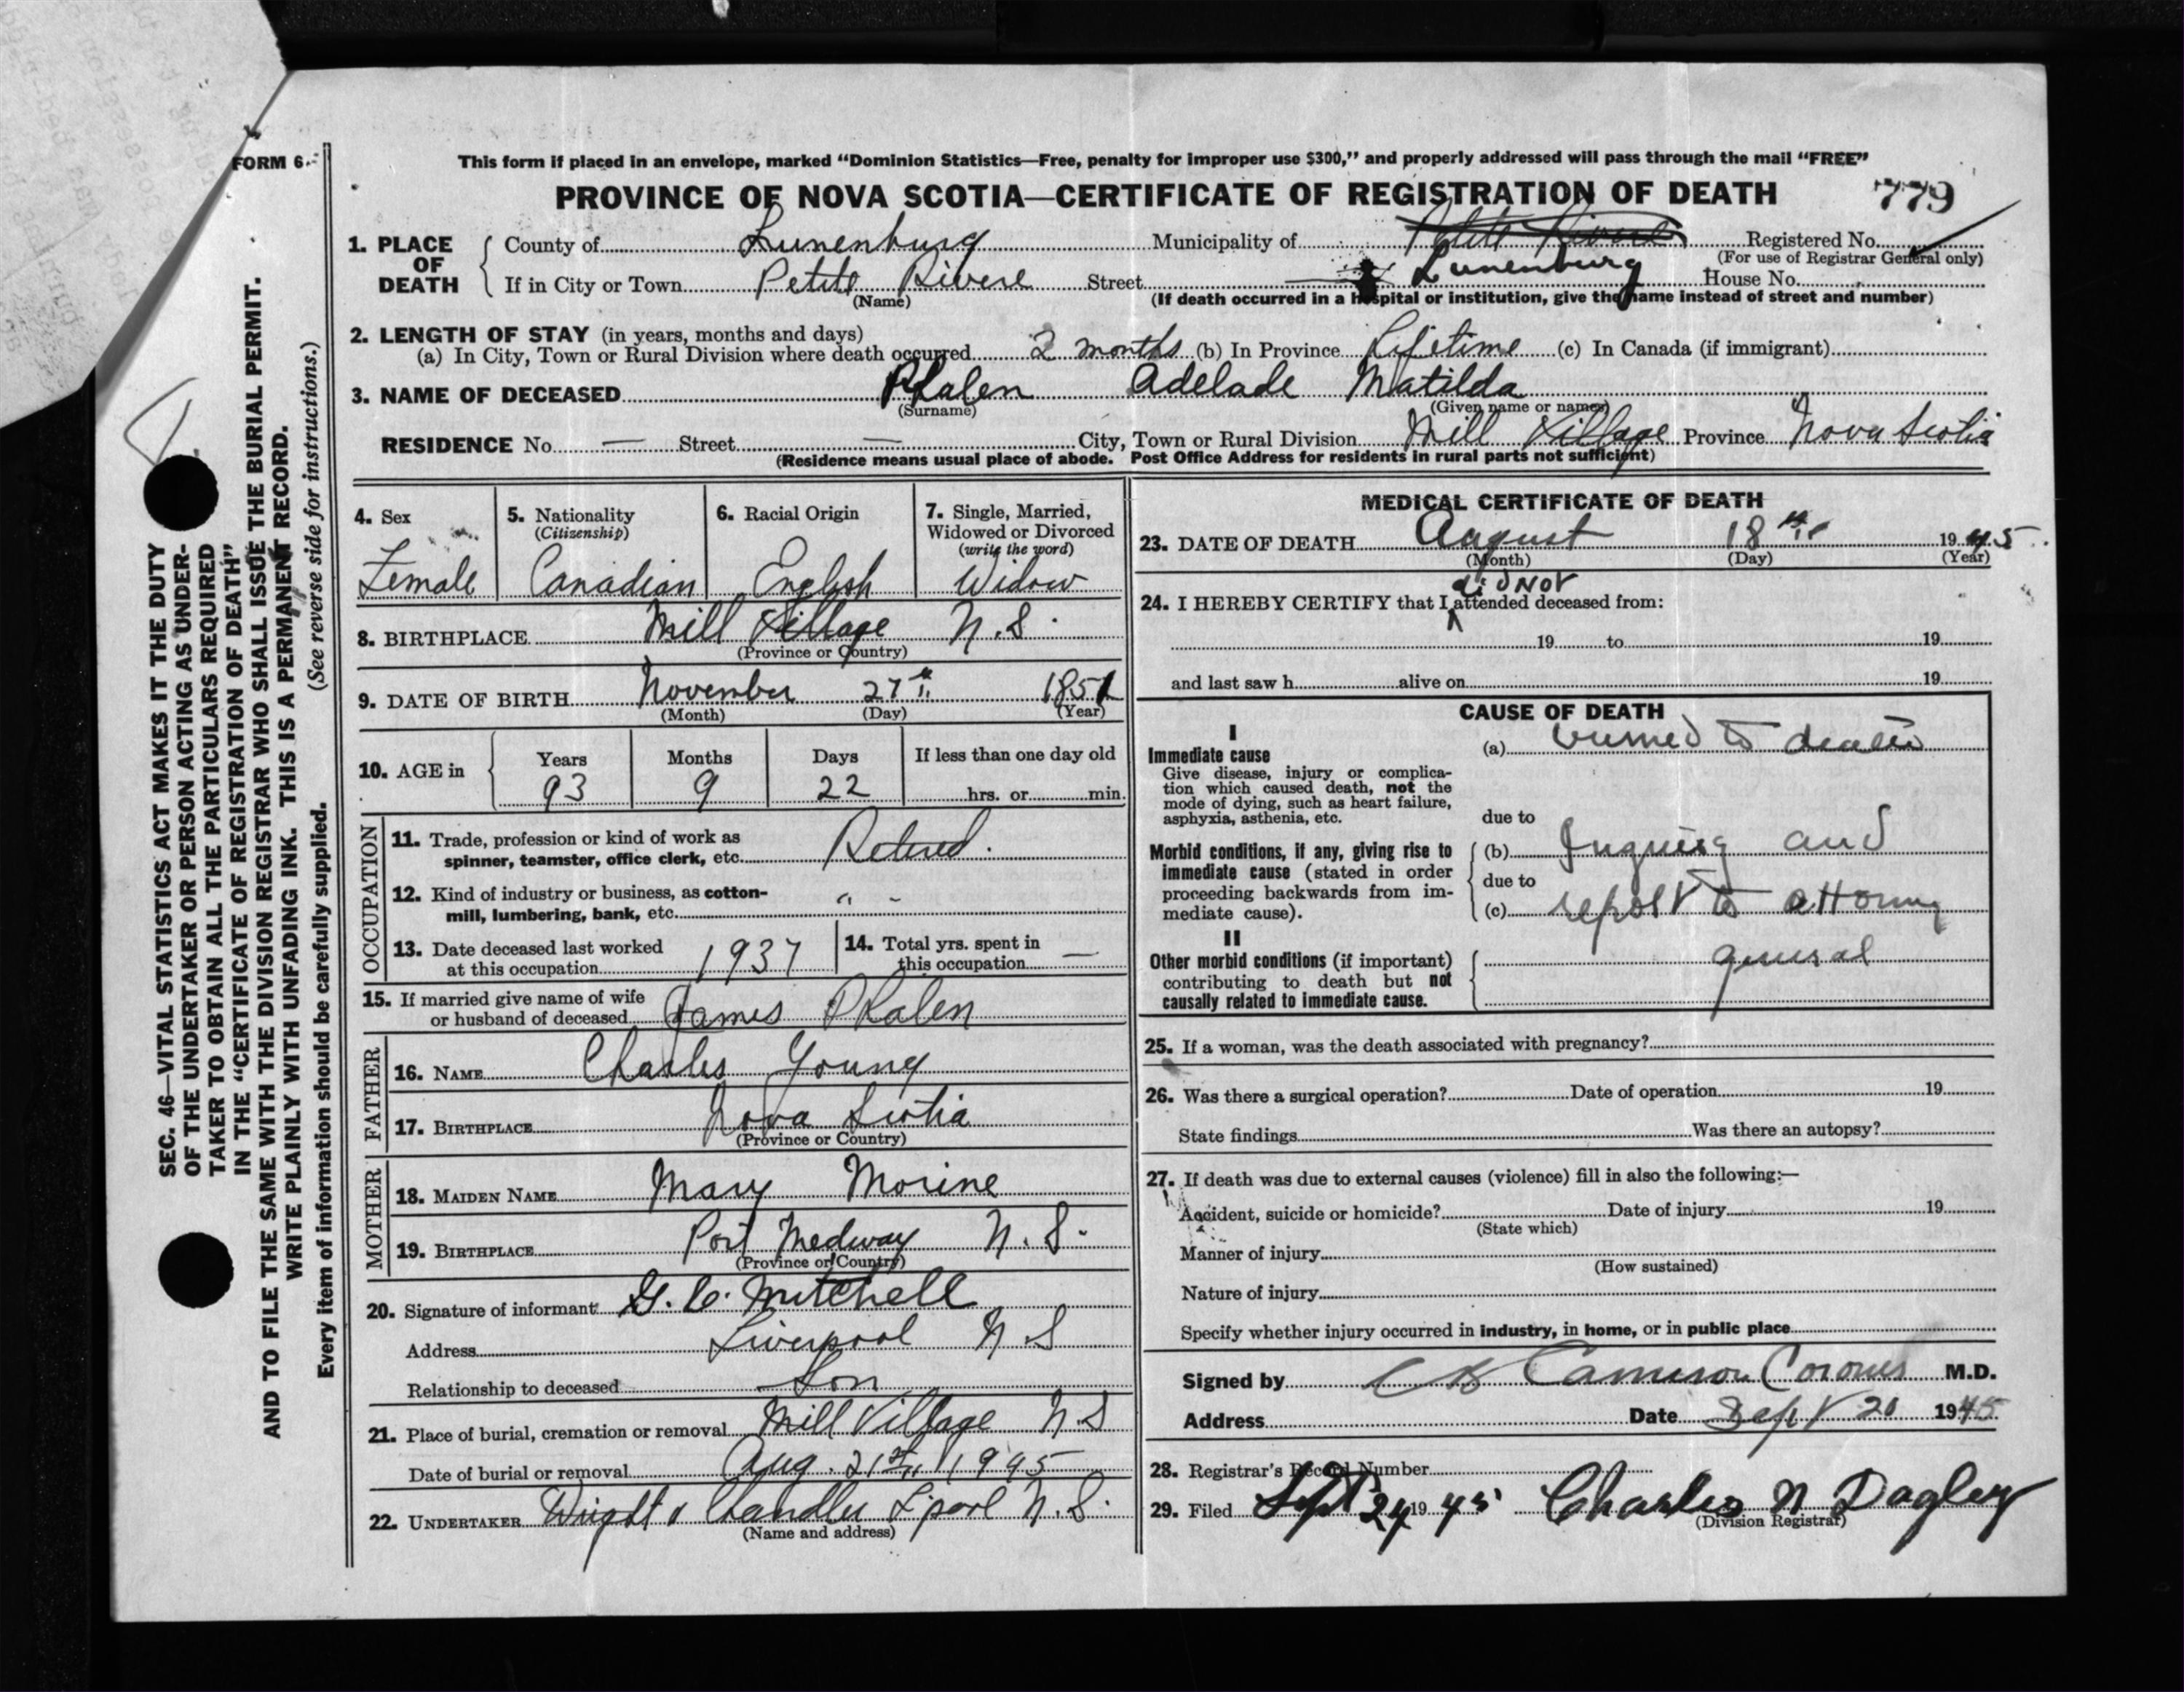 FORM 6
This form if placed in an envelope, marked “Dominion Statistics—Free, penalty for improper use $300,” and properly addressed will pass through the mail “FREE”
PROVINCE OF NOVA SCOTIA—CERTIFICATE OF REGISTRATION OF DEATH 779
1. PLACE OF DEATH County of Lunenburg Municipality of Petite Rivere Lunenburg Registered No.
(For use of Registrar General only)
If in City or Town Petite Rivere Street House No.
(Name) (If death occurred in a hospital or institution, give the name instead of street and number)
2. LENGTH OF STAY (in years, months and days)
(a) In City, Town or Rural Division where death occurred 2 months (b) In Province Lifetime (c) In Canada (if immigrant)
3. NAME OF DECEASED Phalen Adelade Matilda
(Surname) (Given name or names)
RESIDENCE No. — Street — City, Town or Rural Division Mill Village Province Nova Scotia
(Residence means usual place of abode. Post Office Address for residents in rural parts not sufficient)
4. Sex Female
5. Nationality (Citizenship) Canadian
6. Racial Origin English
7. Single, Married, Widowed or Divorced (write the word) Widow
8. BIRTHPLACE Mill Village N.S.
(Province or Country)
9. DATE OF BIRTH November 27th 1851
(Month) (Day) (Year)
10. AGE in Years Months Days If less than one day old
93 9 22 hrs. or min.
OCCUPATION
11. Trade, profession or kind of work as
spinner, teamster, office clerk, etc. Retired.
12. Kind of industry or business, as cotton-
mill, lumbering, bank, etc. " -
13. Date deceased last worked
at this occupation 1937
14. Total yrs. spent in
this occupation —
15. If married give name of wife
or husband of deceased James Phalen
FATHER
16. NAME Charles Young
17. BIRTHPLACE Nova Scotia
(Province or Country)
MOTHER
18. MAIDEN NAME Mary Morine
19. BIRTHPLACE Port Medway N.S.
(Province or Country)
20. Signature of informant G. C. Mitchell
Address Liverpool N S
Relationship to deceased Son
21. Place of burial, cremation or removal Mill Village N.S
Date of burial or removal Aug. 21st 1945
22. UNDERTAKER Wright & Chandler L'pool N.S.
(Name and address)
MEDICAL CERTIFICATE OF DEATH
23. DATE OF DEATH August 18th 1945
(Month) (Day) (Year)
did NOT
24. I HEREBY CERTIFY that I attended deceased from:
19 to 19
and last saw h alive on 19
CAUSE OF DEATH
I
Immediate cause
Give disease, injury or complica-
tion which caused death, not the
mode of dying, such as heart failure,
asphyxia, asthenia, etc.
(a) burned to death
due to
Morbid conditions, if any, giving rise to
immediate cause (stated in order
proceeding backwards from im-
mediate cause).
(b) Inquiry and
due to
(c) report to attorney
II
Other morbid conditions (if important)
contributing to death but not
causally related to immediate cause.
general
25. If a woman, was the death associated with pregnancy?
26. Was there a surgical operation? Date of operation 19
State findings Was there an autopsy?
27. If death was due to external causes (violence) fill in also the following:—
Accident, suicide or homicide? Date of injury 19
(State which)
Manner of injury
(How sustained)
Nature of injury
Specify whether injury occurred in industry, in home, or in public place
Signed by Cameron Coroner M.D.
Address Date Sept 20 1945
28. Registrar's Record Number
29. Filed Sept 24 1945 Charles N Dagley
(Division Registrar)
SEC. 46—VITAL STATISTICS ACT MAKES IT THE DUTY
OF THE UNDERTAKER OR PERSON ACTING AS UNDER-
TAKER TO OBTAIN ALL THE PARTICULARS REQUIRED
IN THE “CERTIFICATE OF REGISTRATION OF DEATH”
AND TO FILE THE SAME WITH THE DIVISION REGISTRAR WHO SHALL ISSUE THE BURIAL PERMIT.
WRITE PLAINLY WITH UNFADING INK. THIS IS A PERMANENT RECORD.
(See reverse side for instructions.)
Every item of information should be carefully supplied.